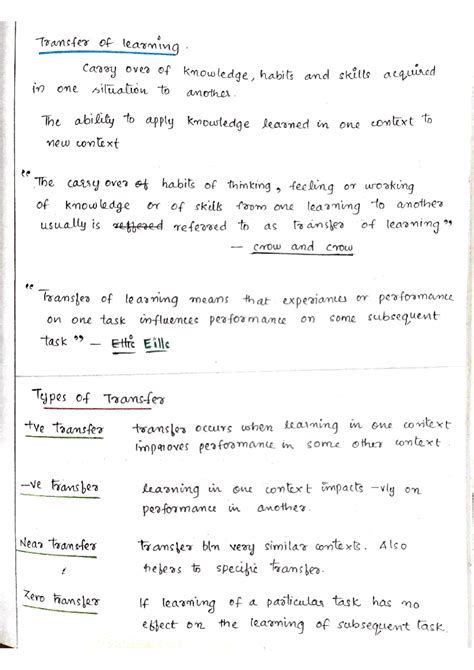 Transfer of learning.
Carry over of knowledge, habits and skills acquired
in one situation to another.
The ability to apply knowledge learned in one context to
new context
"The carry over of habits of thinking, feeling or working
of knowledge or of skills from one learning to another
usually is reffered referred to as transfer of learning"
— crow and crow
"Transfer of learning means that experiances or performance
on one task influences performance on some subsequent
task" — Ettic Eills
Types of Transfer
+ve transfer transfer occurs when learning in one context
improves performance in some other context.
-ve transfer learning in one context impacts -vly on
performance in another.
Near transfer transfer b/n very similar contexts. Also
refers to specific transfer.
Zero transfer If learning of a particular task has no
effect on the learning of subsequent task.